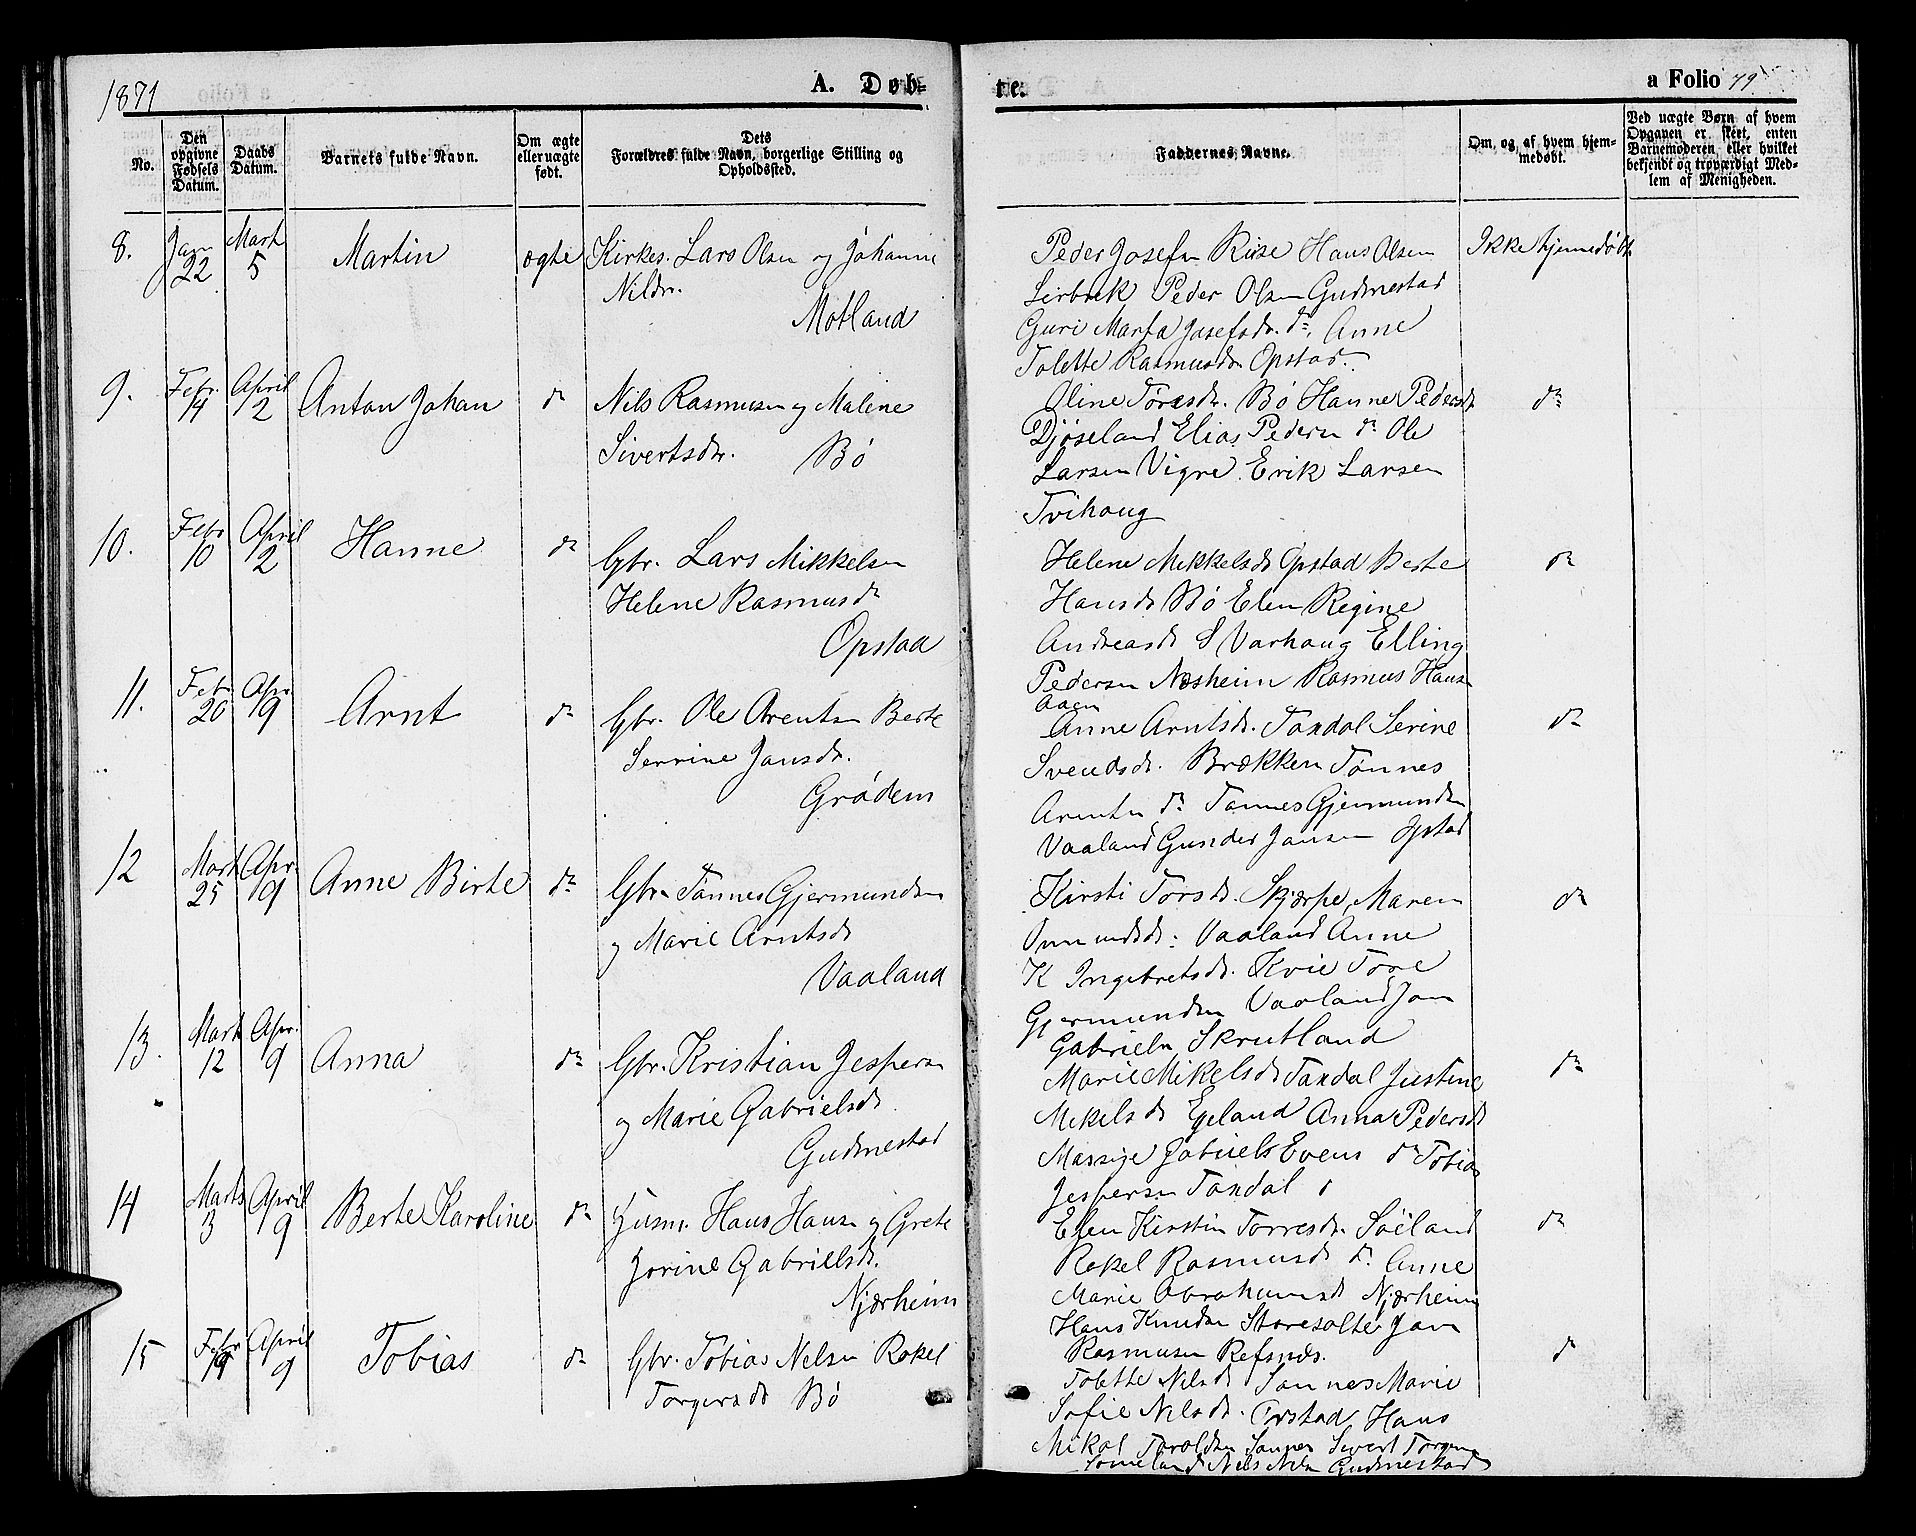 1871
A. Døb-
te.
a Folio 79
No.
Den opgivne Fødsels Datum.
Daabs Datum.
Barnets fulde Navn.
Om ægte eller uægte født.
Dets Forældres fulde Navn, borgerlige Stilling og Opholdssted.
Faddernes Navne.
Om, og af hvem hjem-
medøbt.
Ved uægte Børn af hvem
Opgaven er skeet, enten
Barnemoderen, eller hvilket
bekjendt og troværdigt Med-
lem af Menigheden.
8. Jan 22 Mart 5 Martin ægte Kirkes. Lars Olsen og Johanne
Nildr.
Motland
Peder Josefsn Riise Hans Olsen
Peder Olsen Gudmestad
Guri Marta Josefsdr. do, Anne
Tolette Rasmusdr Opstad
Ikke hjemmedøbt
9. Febr. 14 April 2 Anton Johan do Nils Rasmusen og Malene
Sivertsdr. Bø
Oline Toresdr. Bø Hanne Pedersdr
Djøseland Elias Pedersn do Ole
Larsen Vigre Erik Larsen
Tvihaug
do
10. Febr 10 April 2 Hanne do Gbr. Lars Mikkelsen
Helene Rasmusdr
Opstad
Helene Mikkelsdr Opstad Berte
Hansdr Bø Elen Regine
Andreasdr S Varhaug Elling
Pedersen Næsheim Rasmus Hansn
Aaen
do
11. Febr. 20 Apr. 9 Arnt do Gbr. Ole Arentsn Berte
Serrine Jansdr.
Grødem
Anne Arntsdr. Taxdal Serine
Svendsdr. Brækken Tønnes
Arentsn do Tønnes Gjermundsn
Vaaland Gunder Jansen Opstad
do
12 Mart 25 Apr. 9 Anne Birte do Gbr. Tønnes Gjermundsn
og Marie Arntsdr
Vaaland
Kirsti Torsdr. Skjærpe, Maren
Omundsdr. Vaaland Anne
K Ingebretsdr. Kvie Tore
Gjermundsn Vaaland Jan
Gabrielsn Skrutland
do
13. Mart 12 Apr. 9 Anna do Gbr. Kristian Jespersn
og Marie Gabrielsdr
Gudmestad
Marie Mikelsdr Taxdal Justine
Mikelsdr Egeland Anna Pedersdr
Gabriels Evens do Tobias
Jespersen Taxdal
do
14 Marts 3 April 9 Berte Karoline do Husm. Hans Hansn og Grete
Jorine Gabrielsdr.
Njærheim
Elen Kirstin Torresdr. Søiland
Rakel Rasmusdr do. Anne
Marie Abrahamsdr Njærheim
Hans Knudsn Storesolte Jan
Rasmusen Refsnæs.
do
15 Febr 19 April 9 Tobias do Gbr. Tobias Nelsen Rakel
Torgersdr Bø
Tolette Nilsdr Marie
Sofie Nilsdr. Hans
Mikal Sivert Torgersn
Nils Nilsn Gudmestad
do